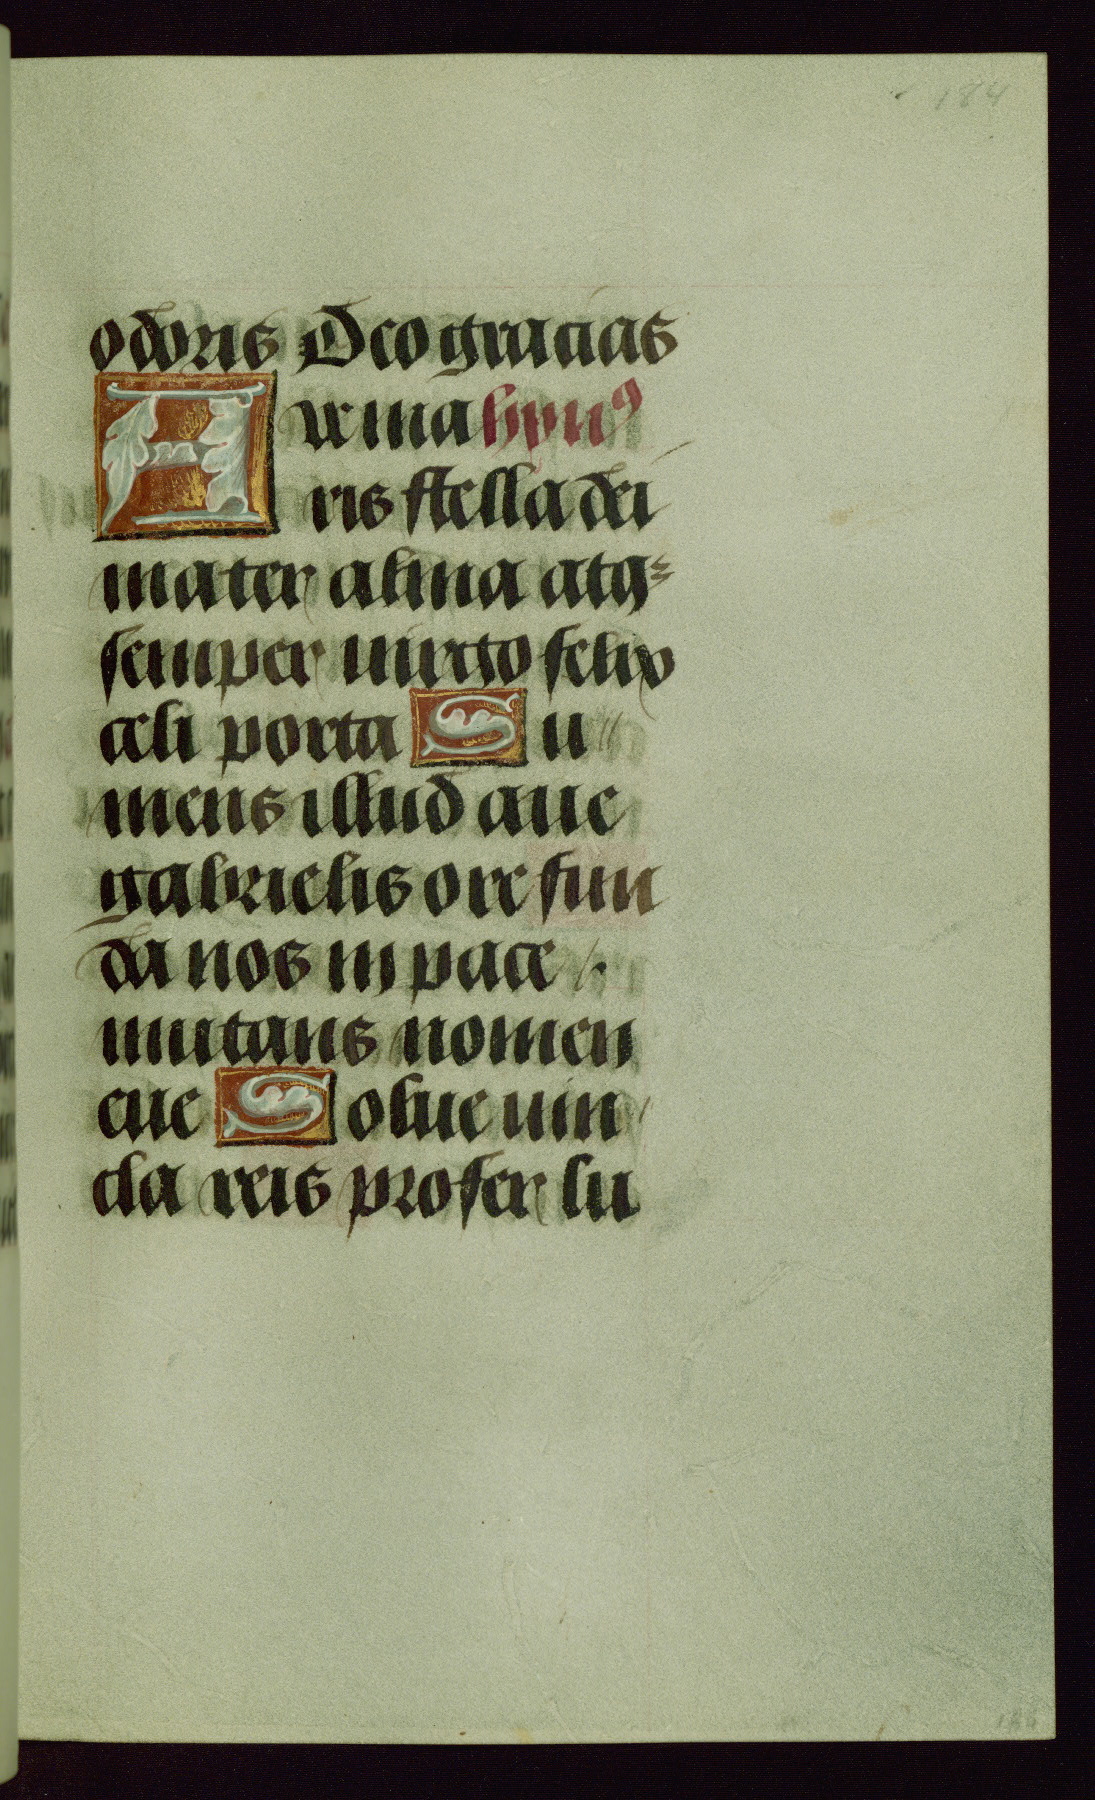 184
odoris Deo gracias
Aue ma hỹnꝰ
ris stella dei
mater alma atqꝫ
semper uirgo felix
celi porta Su
mens illud aue
gabrielis ore fun
da nos in pace /.
mutans nomen
eue Solue uin
cla reis profer lu